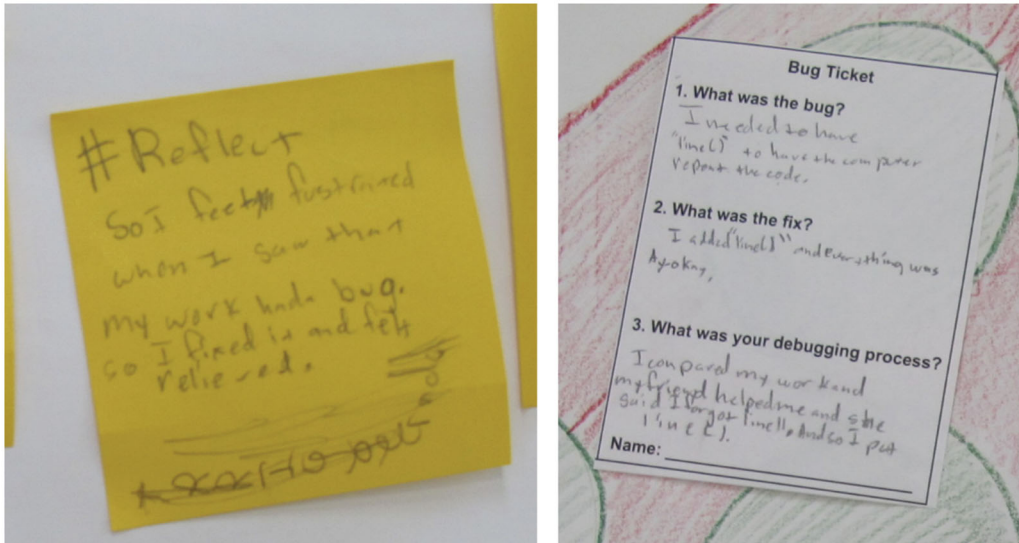 #Reflect
So I feet fustraited
when I saw that
my work had a bug.
so I fixed it and felt
relieved.
Bug Ticket
1. What was the bug?
I needed to have
"line()" to have the computer
repeat the code.
2. What was the fix?
I added "line()" and everything was
Ayokay,
3. What was your debugging process?
I compared my work and
my friend helped me and she
said I forgot line(). And so I put
line().
Name: